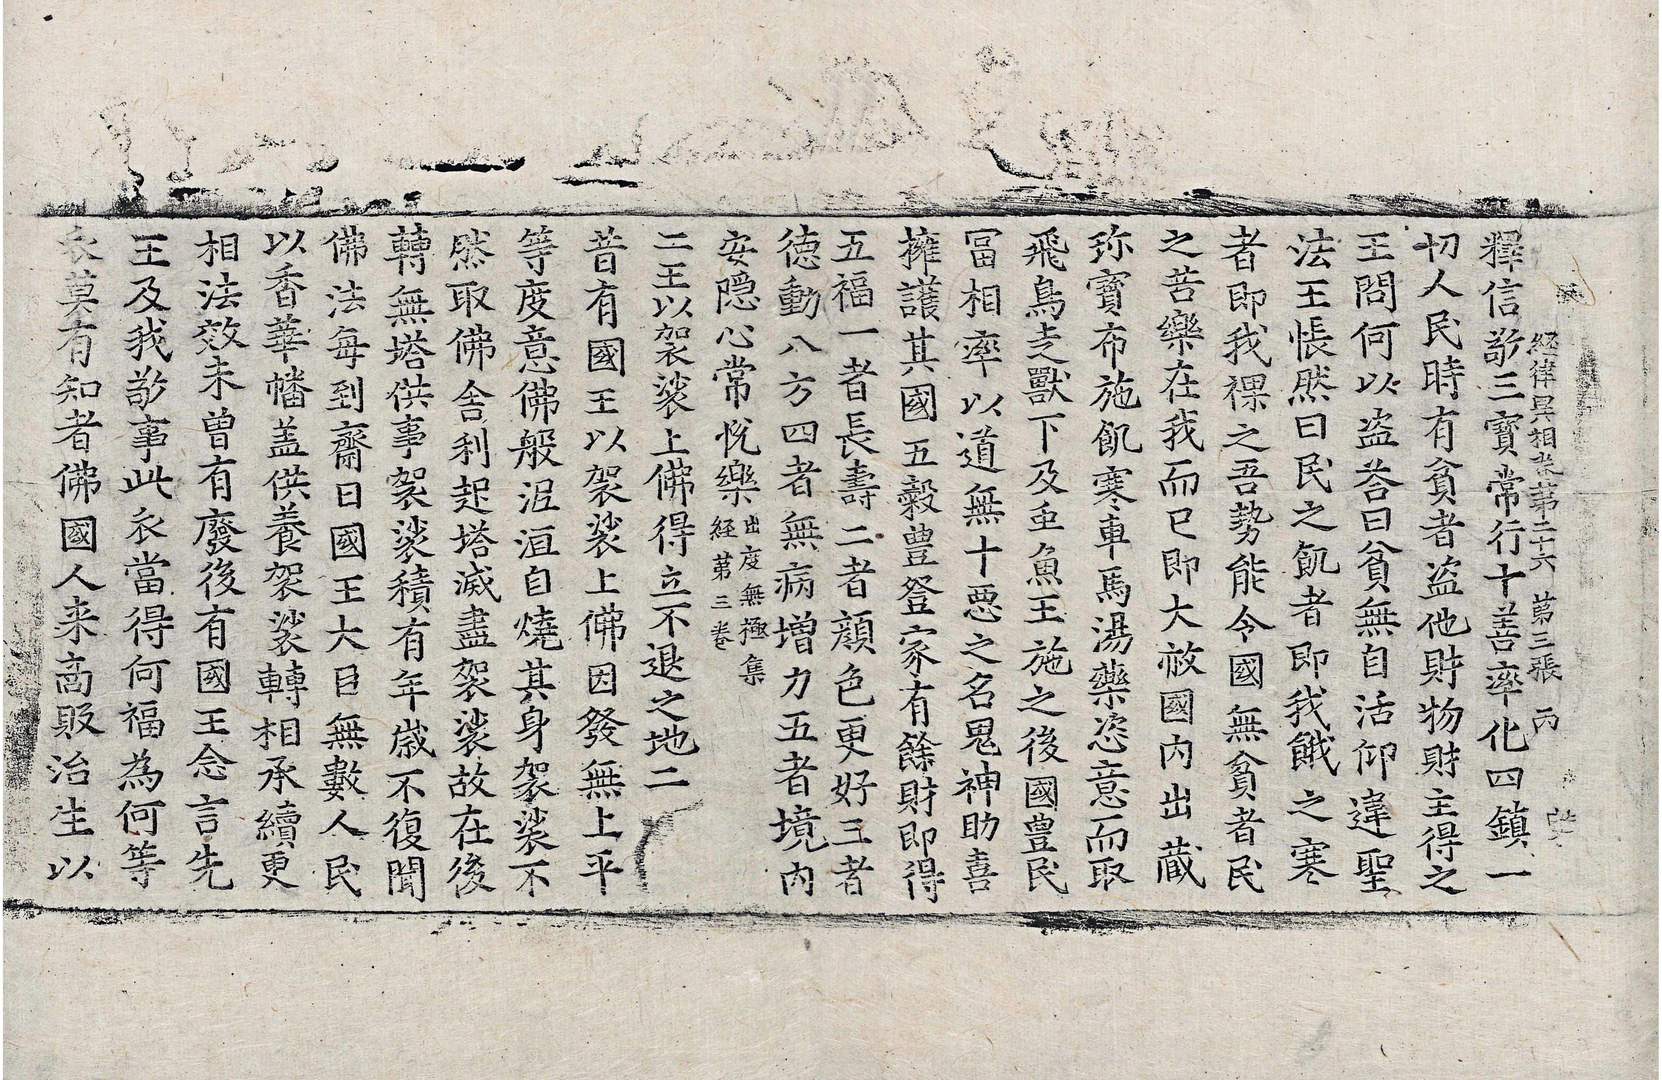 経律異相卷第二十六 第三張 丙
釋信敬三寶常行十善率化四鎮一
切人民時有貧者盜他財物財主得之
王問何以盜荅曰貧無自活仰違聖
法王悵然曰民之飢者即我餓之寒
者即我裸之吾勢能令國無貧者民
之苦樂在我而已即大赦國內出蔵
珎寶布施飢寒車馬湯藥恣意而取
飛鳥走獸下及虫魚王施之後國豊民
冨相率以道無十惡之名鬼神助喜
擁護其國五糓豊登家有餘財即得
五福一者長壽二者顔色更好三者
德動八方四者無病增力五者境內
安隱心常悅樂出度無極集
経第三卷
二王以袈裟上佛得立不退之地二
昔有國王以袈裟上佛因發無上平
等度意佛般泥洹自燒其身袈裟不
然取佛舍利起塔滅盡袈裟故在後
轉無塔供事袈裟積有年歲不復聞
佛法每到齋日國王大臣無數人民
以香華幡盖供養袈裟轉相承續更
相法效未曾有廢後有國王念言先
王及我敬事此衣當得何福為何等
衣莫有知者佛國人来商販治生以